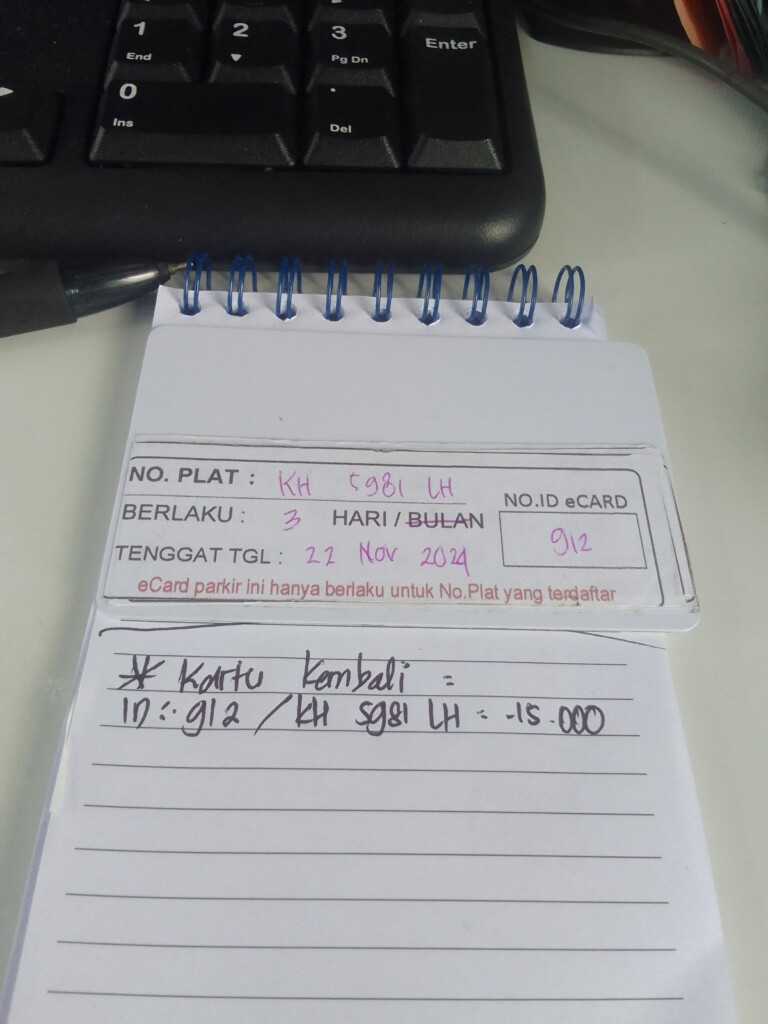 1 2 3 Enter
End Pg Dn
0 .
Ins Del
NO. PLAT : KH 5981 LH
NO.ID eCARD
BERLAKU : 3 HARI / BULAN
912
TENGGAT TGL : 22 Nov 2024
eCard parkir ini hanya berlaku untuk No.Plat yang terdaftar
* Kartu Kembali =
ID : 912 / KH 5981 LH = -15.000